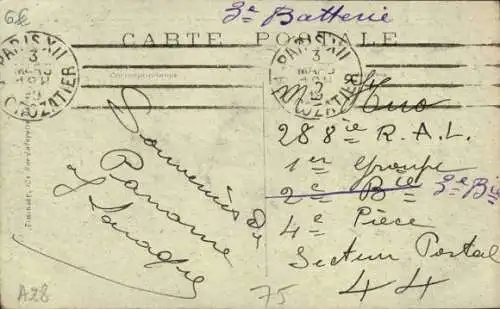 6€
3e Batterie
CARTE POSTALE
PARIS XII
3
MARS
CROZATIER
PARIS XII
3
MARS
CROZATIER
Correspondance
Souvenirs de
Paname
Mr Huo
288ie R.A.L.
1er Groupe
2e Bie 3e Bie
4e Pièce
Secteur Postal
44
A28
75